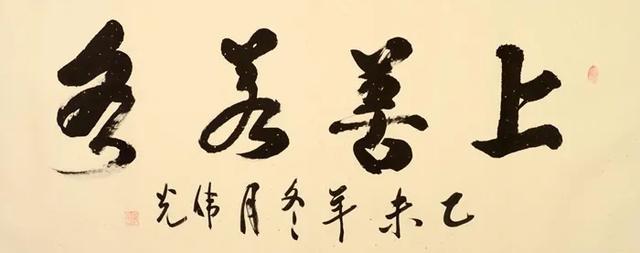 上善若
乙未羊冬月伟光